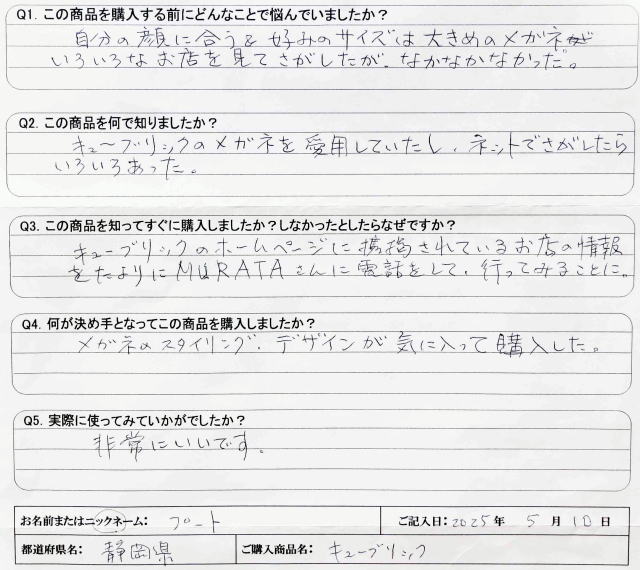 Q1. この商品を購入する前にどんなことで悩んでいましたか？
自分の顔に合う&好みのサイズは大きめのメガネ
いろいろなお店を見てさがしたが、なかなかなかった。
Q2. この商品を何で知りましたか？
キューブリックのメガネを愛用していたし、ネットでさがしたら
いろいろあった。
Q3. この商品を知ってすぐに購入しましたか？しなかったとしたらなぜですか？
キューブリックのホームページに掲載されているお店の情報
をたよりにMURATAさんに電話をして、行ってみることに。
Q4. 何が決め手となってこの商品を購入しましたか？
メガネのスタイリング、デザインが気に入って購入した。
Q5. 実際に使ってみていかがでしたか？
非常にいいです。
お名前またはニックネーム： プート ご記入日：2025年 5月10日
都道府県名： 静岡県 ご購入商品名： キューブリック